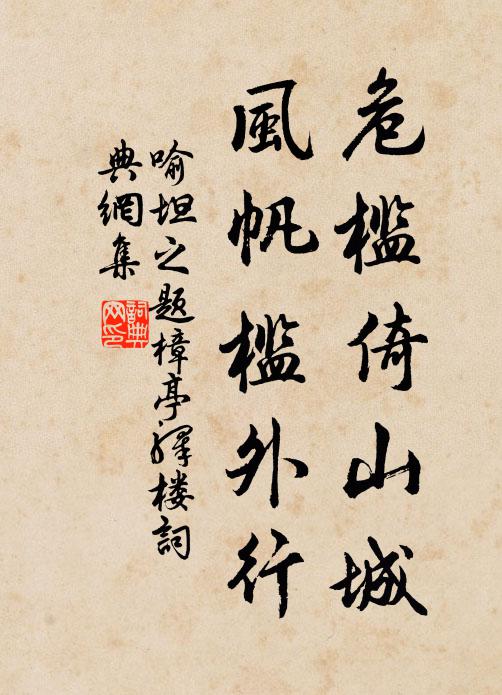 危檻倚山城
風帆檻外行
喻坦之题樟亭驛楼詞
典網集
詞典
网印